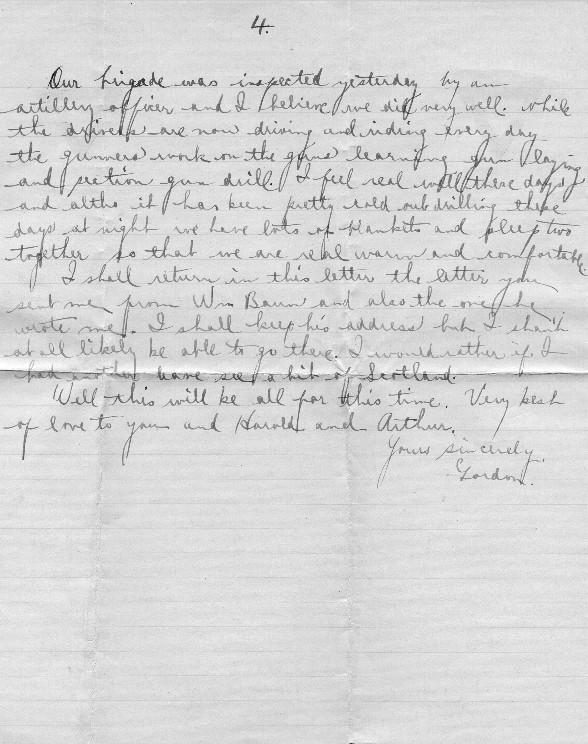 4.
Our brigade was inspected yesterday by an
artillery officer and I believe we did very well. While
the drivers are now driving and riding every day
the gunners work on the guns learning gun laying
and section gun drill. I feel real well these days
and altho it has been pretty cold out drilling these
days at night we have lots of blankets and sleep two
together so that we are real warm and comfortable.
I shall return in this letter the letter you
sent me from Wm and also the one he
wrote me. I shall keep his address but I shan't
at all likely be able to go there. I would rather if I
had see a bit of Scotland.
Well this will be all for this time. Very best
of love to you and Harold and Arthur.
Yours sincerely,
Gordon.